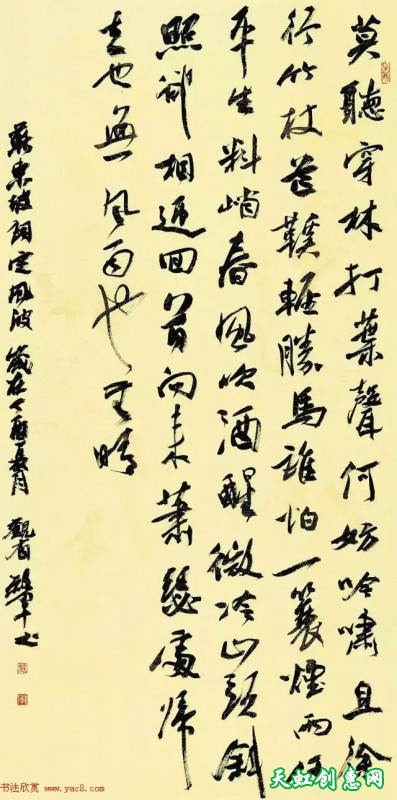 莫聽穿林打葉聲何妨吟嘯且徐
行竹杖芒鞵輕勝馬誰怕一蓑煙雨任
平生料峭春風吹酒醒微冷山頭斜
照卻相迎回首向來蕭瑟處歸
去也無風雨也无晴
蘇東坡詞定風波 歲在丁酉夏月
书法欣赏 www.yac8.com
天虹创惠网